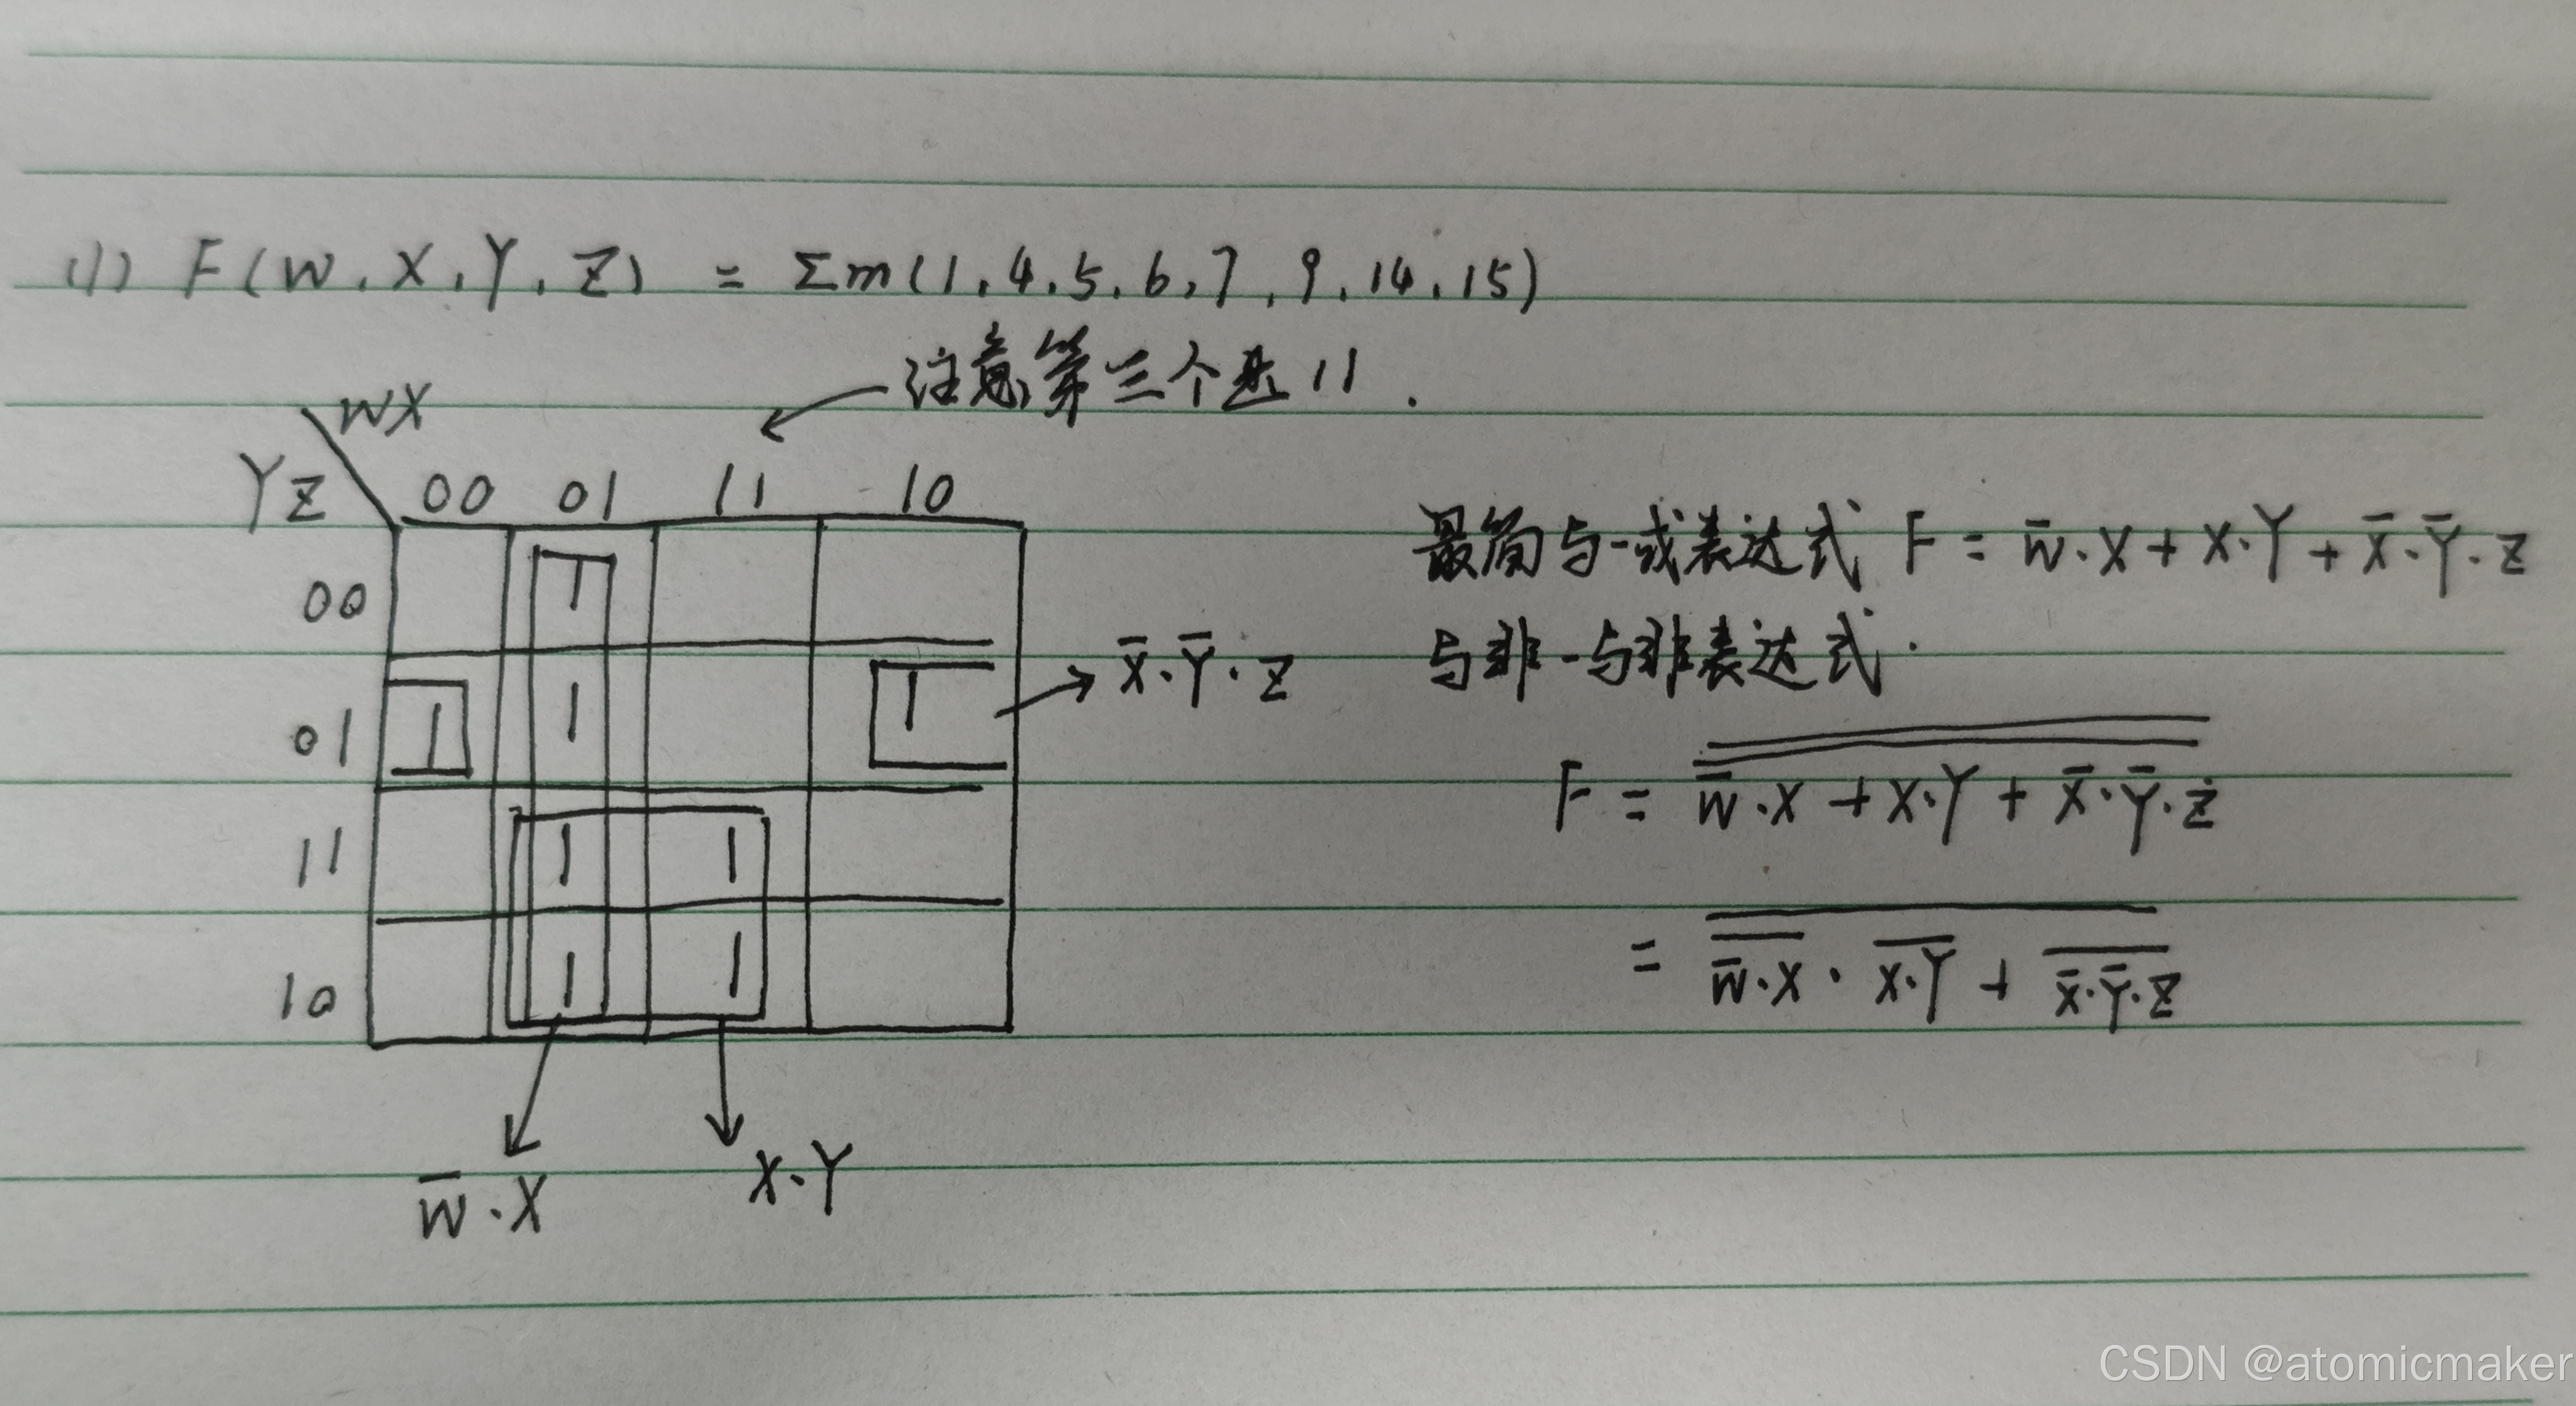 (1) F(W,X,Y,Z) = Σm(1,4,5,6,7,9,14,15)
注意第三个是11.
WX
YZ 00 01 11 10
00 1
01 1 1 1
11 1 1
10 1 1
X̅·Y̅·Z
W̅·X
X·Y
最简与-或表达式 F = W̅·X + X·Y + X̅·Y̅·Z
与非-与非表达式.
F = W̅·X + X·Y + X̅·Y̅·Z
= W̅·X · X·Y + X̅·Y̅·Z
CSDN @atomicmaker